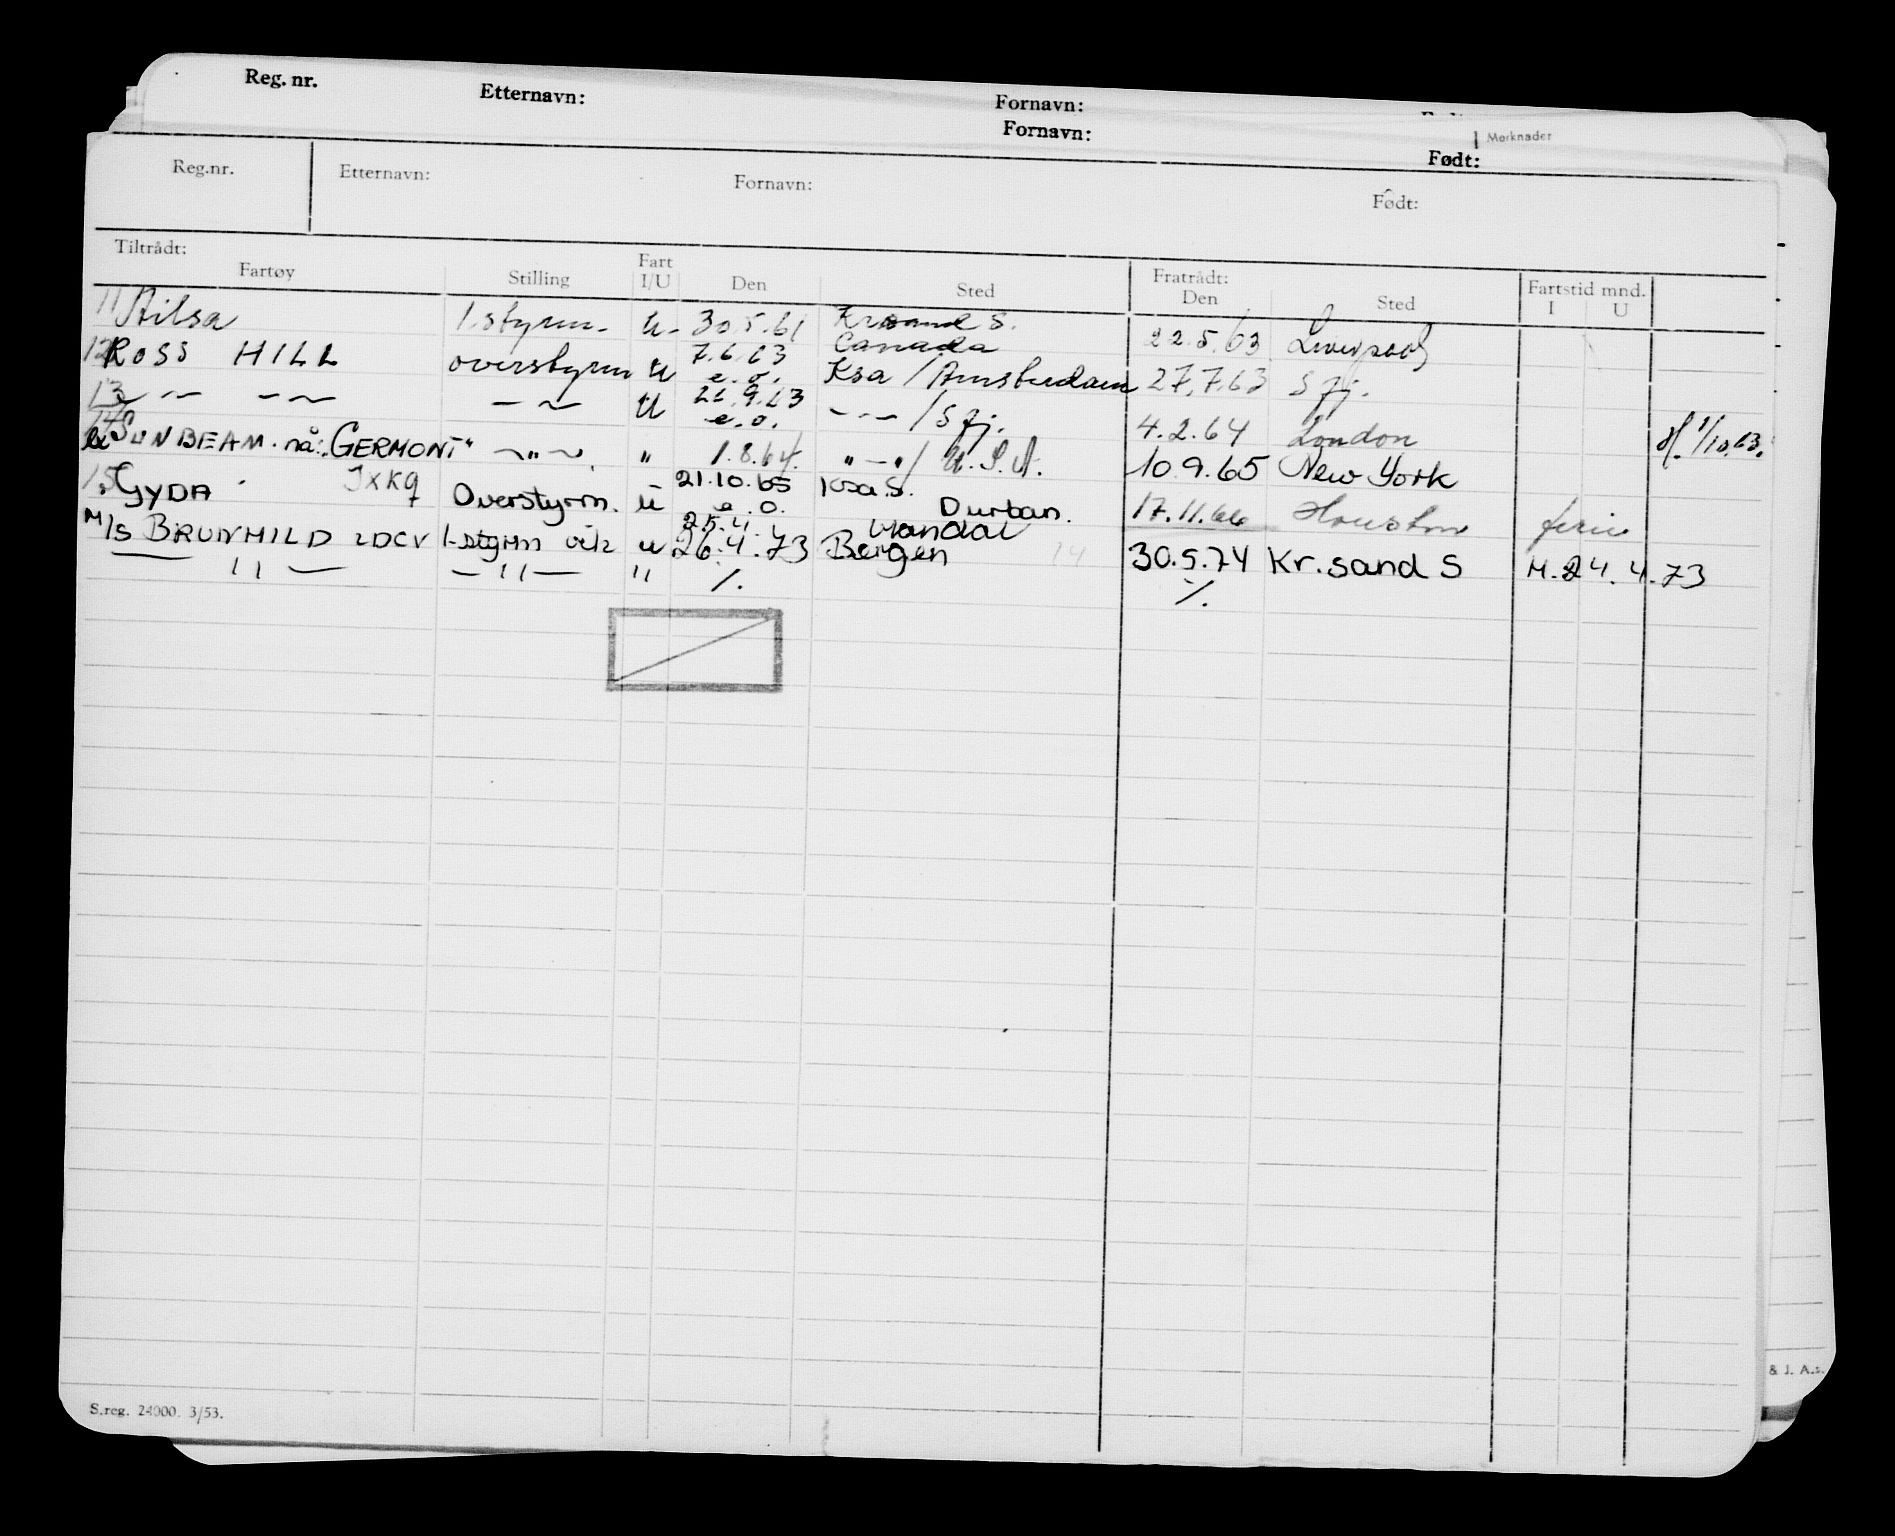 Reg. nr. Etternavn: Fornavn:
Fornavn: Merknader
Født:
Reg.nr. Etternavn: Fornavn: Født:
Tiltrådt: Fart Fratrådt: Fartstid mnd.
Fartøy Stilling I/U Den Sted Den Sted I U
11 Ailsa 1.styrm. U. 30.5.61 Krsand S. 22.5.63 Liverpool
12 ROSS HILL overstyrm U 7.6.63 e.o. Canada Ksa / Amsterdam 27.7.63 Sfj.
13 — " — — " — — " — U 21.9.63 e.o. - - - / Sfj. 4.2.64 London H. 1/10.63.
14 SUNBEAM. nå: "GERMONT" — " — " 1.8.64. " — " / U.S.A. 10.9.65 New York
15 GYDA JXKQ Overstyrm. U 21.10.65 e.o. Ksa S. Durban. 17.11.66 Houston ferie
M/S BRUNHILD LDCV 1-styrm vik U 25.4. 26.4.73 Mandal Bergen 30.5.74 Kr.sand S M.24.4.73
— " — — " — " ⁒ ⁒
S.reg. 24000. 3/53.
& J. A.s.